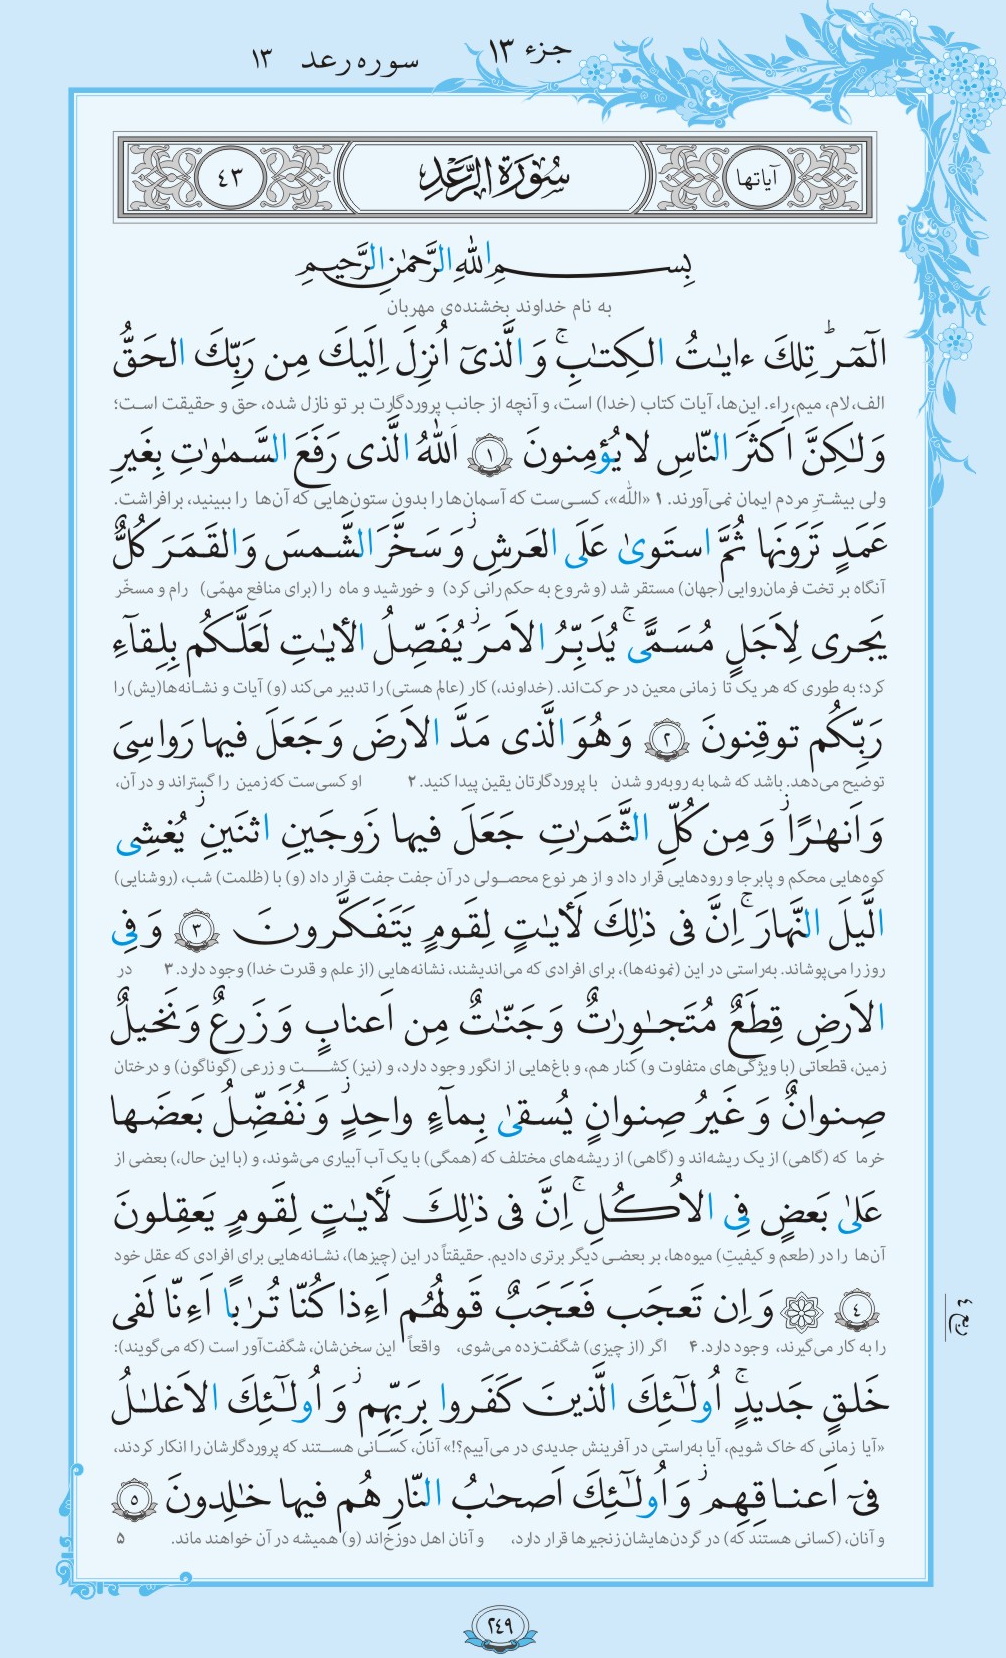 جزء ۱۳
سوره رعد ۱۳
آیاتها
سُورَةُ الرَّعْدِ
٤٣
بِسمِ اللهِ الرَّحمٰنِ الرَّحیمِ
به نام خداوند بخشنده‌ی مهربان
الٓمٓرٰ ۚ تِلكَ ءایٰتُ الكِتٰبِ ۗ وَ الَّذیٓ اُنزِلَ اِلَیكَ مِن رَبِّكَ الحَقُّ
الف، لام، میم، راء. این‌ها، آیات کتاب (خدا) است، و آنچه از جانب پروردگارت بر تو نازل شده، حق و حقیقت است؛
وَ لٰكِنَّ اَكثَرَ النّاسِ لا یُؤمِنونَ ۱ اَللهُ الَّذی رَفَعَ السَّمٰوٰتِ بِغَیرِ
ولی بیشترِ مردم ایمان نمی‌آورند. ۱ «الله»، کسی‌ست که آسمان‌ها را بدون ستون‌هایی که آن‌ها را ببینید، برافراشت.
عَمَدٍ تَرَونَها ثُمَّ استَویٰ عَلَی العَرشِ ز وَ سَخَّرَ الشَّمسَ وَ القَمَرَ كُلٌّ
آنگاه بر تخت فرمان‌روایی (جهان) مستقر شد (و شروع به حکم‌رانی کرد) و خورشید و ماه را (برای منافع مهمّی) رام و مسخّر
یَجری لِاَجَلٍ مُسَمًّی ۚ یُدَبِّرُ الاَمرَ ز یُفَصِّلُ الأیٰتِ لَعَلَّكُم بِلِقآءِ
کرد؛ به طوری که هر یک تا زمانی معین در حرکت‌اند. (خداوند،) کار (عالم هستی) را تدبیر می‌کند (و) آیات و نشانه‌ها(یش) را
رَبِّكُم توقِنونَ ۲ وَ هُوَ الَّذی مَدَّ الاَرضَ وَ جَعَلَ فیها رَواسِیَ
توضیح می‌دهد. باشد که شما به روبه‌رو شدن با پروردگارتان یقین پیدا کنید. ۲ او کسی‌ست که زمین را گستراند و در آن،
وَ اَنهٰرًا ز وَ مِن كُلِّ الثَّمَرٰتِ جَعَلَ فیها زَوجَینِ اثنَینِ ز یُغشِی
کوه‌هایی محکم و پابرجا و رودهایی قرار داد و از هر نوع محصولی در آن جفت جفت قرار داد (و) با (ظلمت) شب، (روشنایی)
الَّیلَ النَّهارَ ۚ اِنَّ فی ذٰلِكَ لَأیٰتٍ لِقَومٍ یَتَفَكَّرونَ ۳ وَ فِی
روز را می‌پوشاند. به‌راستی در این (نمونه‌ها)، برای افرادی که می‌اندیشند، نشانه‌هایی (از علم و قدرت خدا) وجود دارد. ۳ در
الاَرضِ قِطَعٌ مُتَجٰوِرٰتٌ وَ جَنّٰتٌ مِن اَعنابٍ وَ زَرعٌ وَ نَخیلٌ
زمین، قطعاتی (با ویژگی‌های متفاوت و) کنار هم، و باغ‌هایی از انگور وجود دارد، و (نیز) کشت و زرعی (گوناگون) و درختان
صِنوانٌ وَ غَیرُ صِنوانٍ یُسقیٰ بِمآءٍ واحِدٍ ز وَ نُفَضِّلُ بَعضَها
خرما که (گاهی) از یک ریشه‌اند و (گاهی) از ریشه‌های مختلف که (همگی) با یک آب آبیاری می‌شوند، و (با این حال،) بعضی از
عَلیٰ بَعضٍ فِی الاُكُلِ ۚ اِنَّ فی ذٰلِكَ لَأیٰتٍ لِقَومٍ یَعقِلونَ
آن‌ها را در (طعم و کیفیتِ) میوه‌ها، بر بعضی دیگر برتری دادیم. حقیقتاً در این (چیزها)، نشانه‌هایی برای افرادی که عقل خود
٤ وَ اِن تَعجَب فَعَجَبٌ قَولُهُم اَءِذا كُنّا تُرٰبًا اَءِنّا لَفی
ربع ٤
را به کار می‌گیرند، وجود دارد. ۴ اگر (از چیزی) شگفت‌زده می‌شوی، واقعاً این سخن‌شان، شگفت‌آور است (که می‌گویند):
خَلقٍ جَدیدٍ ۗ اُولٰٓئِكَ الَّذینَ كَفَروا بِرَبِّهِم ز وَ اُولٰٓئِكَ الاَغلٰلُ
«آیا زمانی که خاک شویم، آیا به‌راستی در آفرینش جدیدی در می‌آییم؟!» آنان، کسانی هستند که پروردگارشان را انکار کردند،
فیٓ اَعناقِهِم ز وَ اُولٰٓئِكَ اَصحٰبُ النّارِ هُم فیها خٰلِدونَ ۵
و آنان، (کسانی هستند که) در گردن‌هایشان زنجیرها قرار دارد، و آنان اهل دوزخ‌اند (و) همیشه در آن خواهند ماند. ۵
۲٤۹